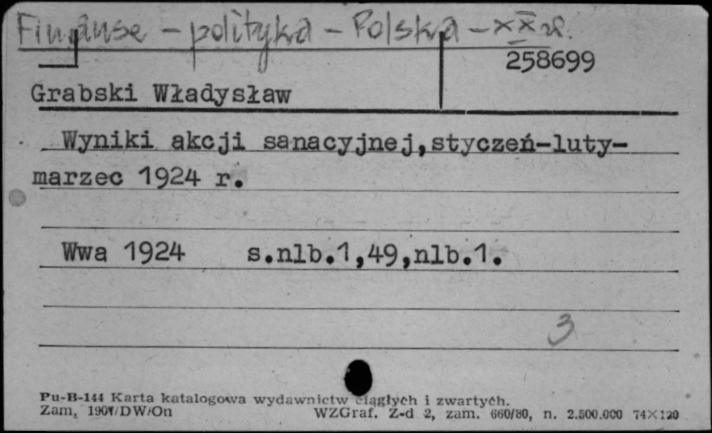 Finanse - polityka - Polska - XX w.
258699
Grabski Władysław
Wyniki akcji sanacyjnej,styczeń-luty-
marzec 1924 r.
Wwa 1924 s.nlb.1,49,nlb.1.
3
Pu-B-144 Karta katalogowa wydawnictw ciągłych i zwartych.
Zam, /DW/On WZGraf. Z-d 2, zam. 660/80, n. 2.500.000 74×120